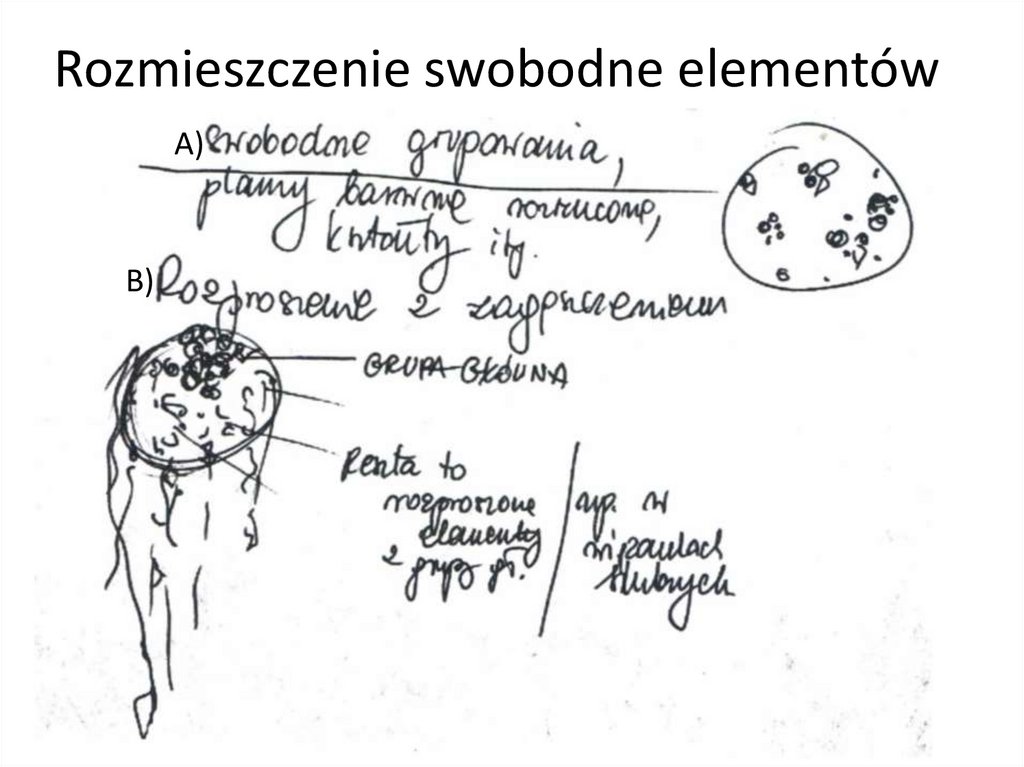 Rozmieszczenie swobodne elementów
A) Swobodne grupowania,
plamy barwne rozrzucone,
kształty itp.
B) Rozproszenie z zagęszczeniem
GRUPA GŁÓWNA
Reszta to
rozproszone
elementy
z grupy gł.
np. w
wiązankach
ślubnych